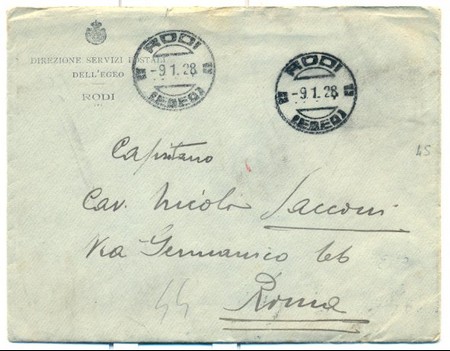 DIREZIONE SERVIZI POSTALI
DELL'EGEO
RODI
RODI
-9.1.28
(EGEO)
RODI
-9.1.28
(EGEO)
Capitano
Cav. Nicola Sacconi
Via Germanico 66
Roma
44
45